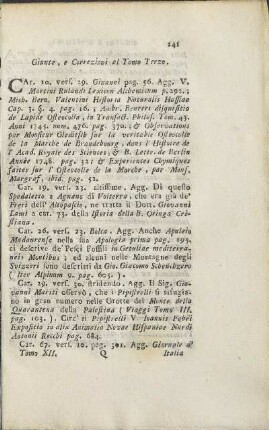 241
Giunte, e Correzioni al Tomo Terzo.
CAr. 10. vers. 29. Ginanni pag. 56. Agg. V.
Martini Rulandi Lexicon Alchemicum p. 292.;
Mich. Bern. Valentini Historia Naturalis Hassiae
Cap. 3. §. 4. pag. 16.; Ambr. Beureri disquisitio
de Lapide Osteocolla, in Transact. Philos. Tom. 43.
Anni 1745. num. 476. pag. 370.; & Observations
par Monsieur Gleditsch sur la veritable Osteocolle
de la Marche de Brandebourg, dans l' Histoire de
l' Acad. Royale des Sciences, & B. Lettr. de Berlin
Année 1748. pag. 32; & Experiences Chymiques
faites sur l' Osteocolle de la Marche, par Mons.
Margraf, ibid. pag. 52.
Car. 19. vers. 23. altissime. Agg. Di questo
Spedaletto a Agnano di Volterra, che ora già de'
Preti dell' Altopascio, ne tratta il Dott. Giovanni
Lami a car. 73. della Istoria della B. Oringa Cri-
stiana.
Car. 26. vers. 23. Bolca. Agg. Anche Apuleio
Madaurense nella sua Apologia prima pag. 193.
ci descrive de' Pesci Fossili in Getuliae mediterra-
neis Montibus; ed alcuni nelle Montagne degli
Svizzeri sono descritti da Gio. Giacomo Scheuchzero
(Iter Alpinum 9. pag. 605.).
Car. 29. vers. 30. stridendo. Agg. Il Sig. Gio-
vanni Mariti osservò, che i Pipistrelli si rifugia-
no in gran numero nelle Grotte del Monte della
Quarantena della Palestina (Viaggi Tomo III.
pag. 103.). Circ' ai Pipistrelli V. Joannis Fabri
Expositio in alia Animalia Novae Hispaniae Nardi
Antonii Recchi pag. 684.
Car. 67. vers. 10. pag. 301. Agg. Giornale d'
Tomo XII. Q Italia